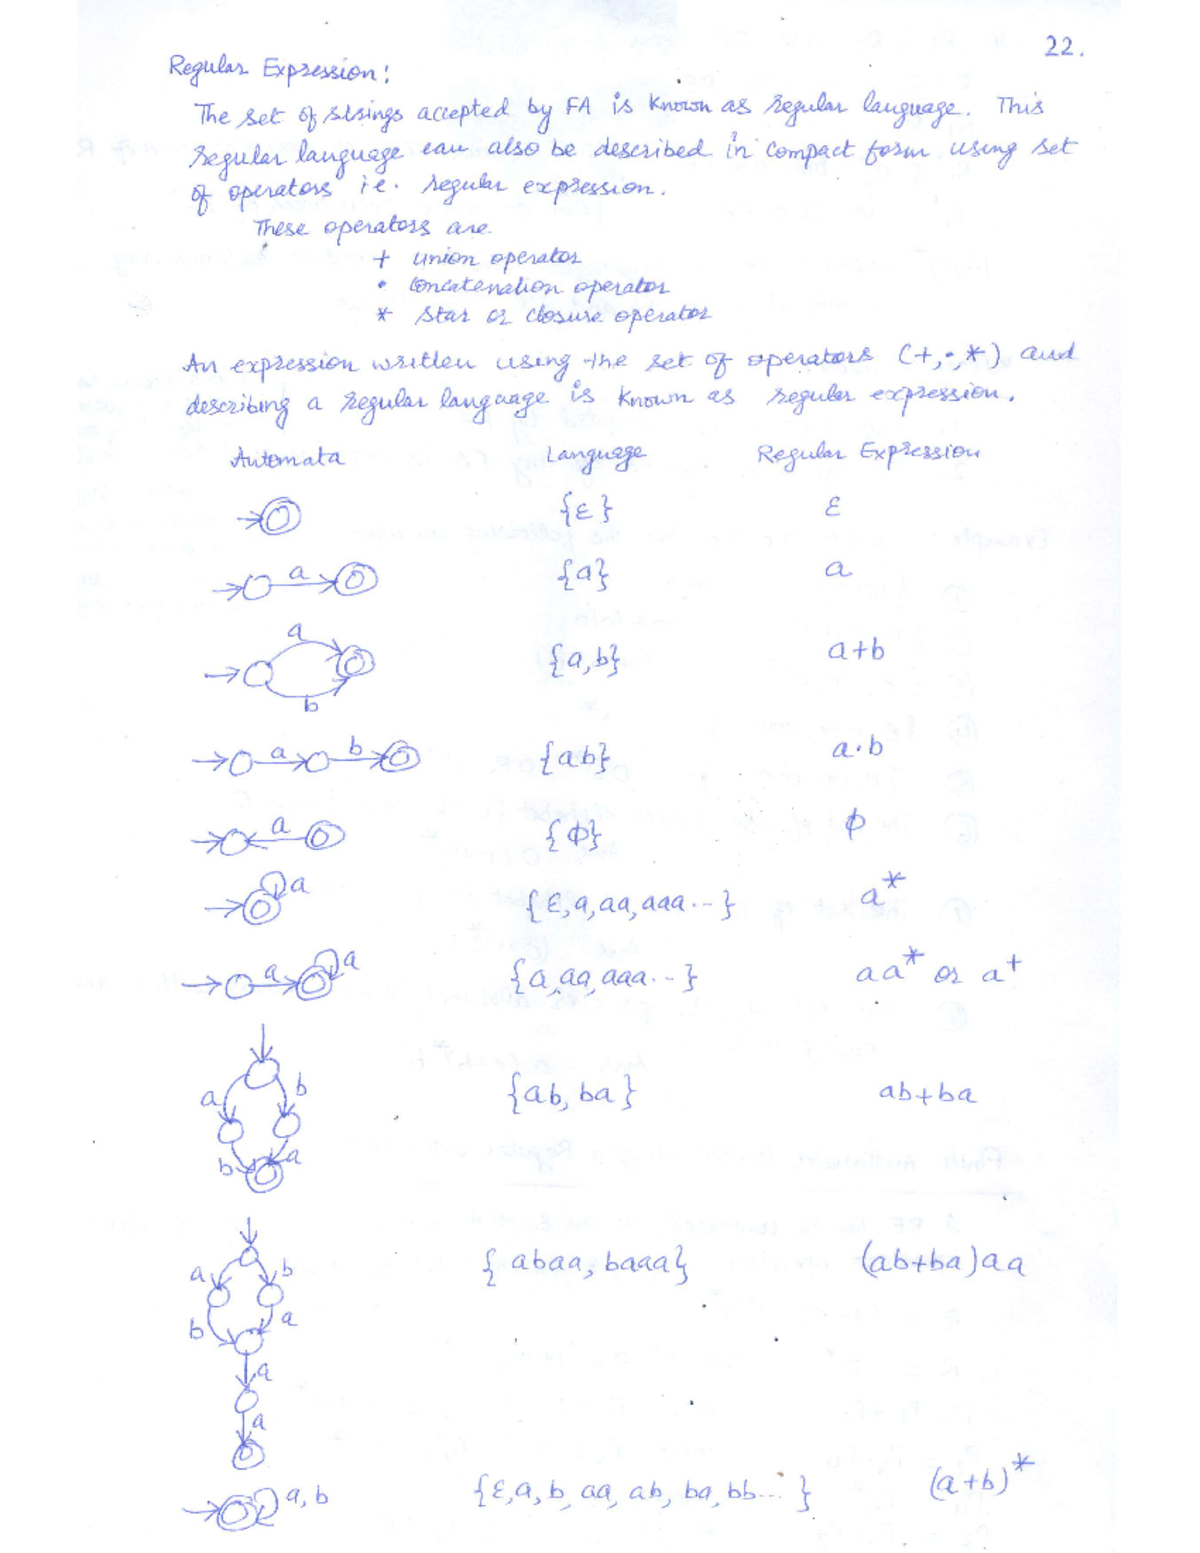 22.
Regular Expression:
The set of strings accepted by FA is known as regular language. This
regular language can also be described in compact form using set
of operators i.e. regular expression.
These operators are
+ union operator
• concatenation operator
* star or closure operator
An expression written using the set of operators (+,•,*) and
describing a regular language is known as regular expression.
Automata Language Regular Expression
{ε} ε
a {a} a
a b {a,b} a+b
a b {ab} a·b
a {ϕ} ϕ
a {ε,a,aa,aaa...} a*
a a {a,aa,aaa...} aa* or a+
a b b a {ab, ba} ab+ba
a b b a a a {abaa, baaa} (ab+ba)aa
a, b {ε,a,b,aa,ab,ba,bb...} (a+b)*